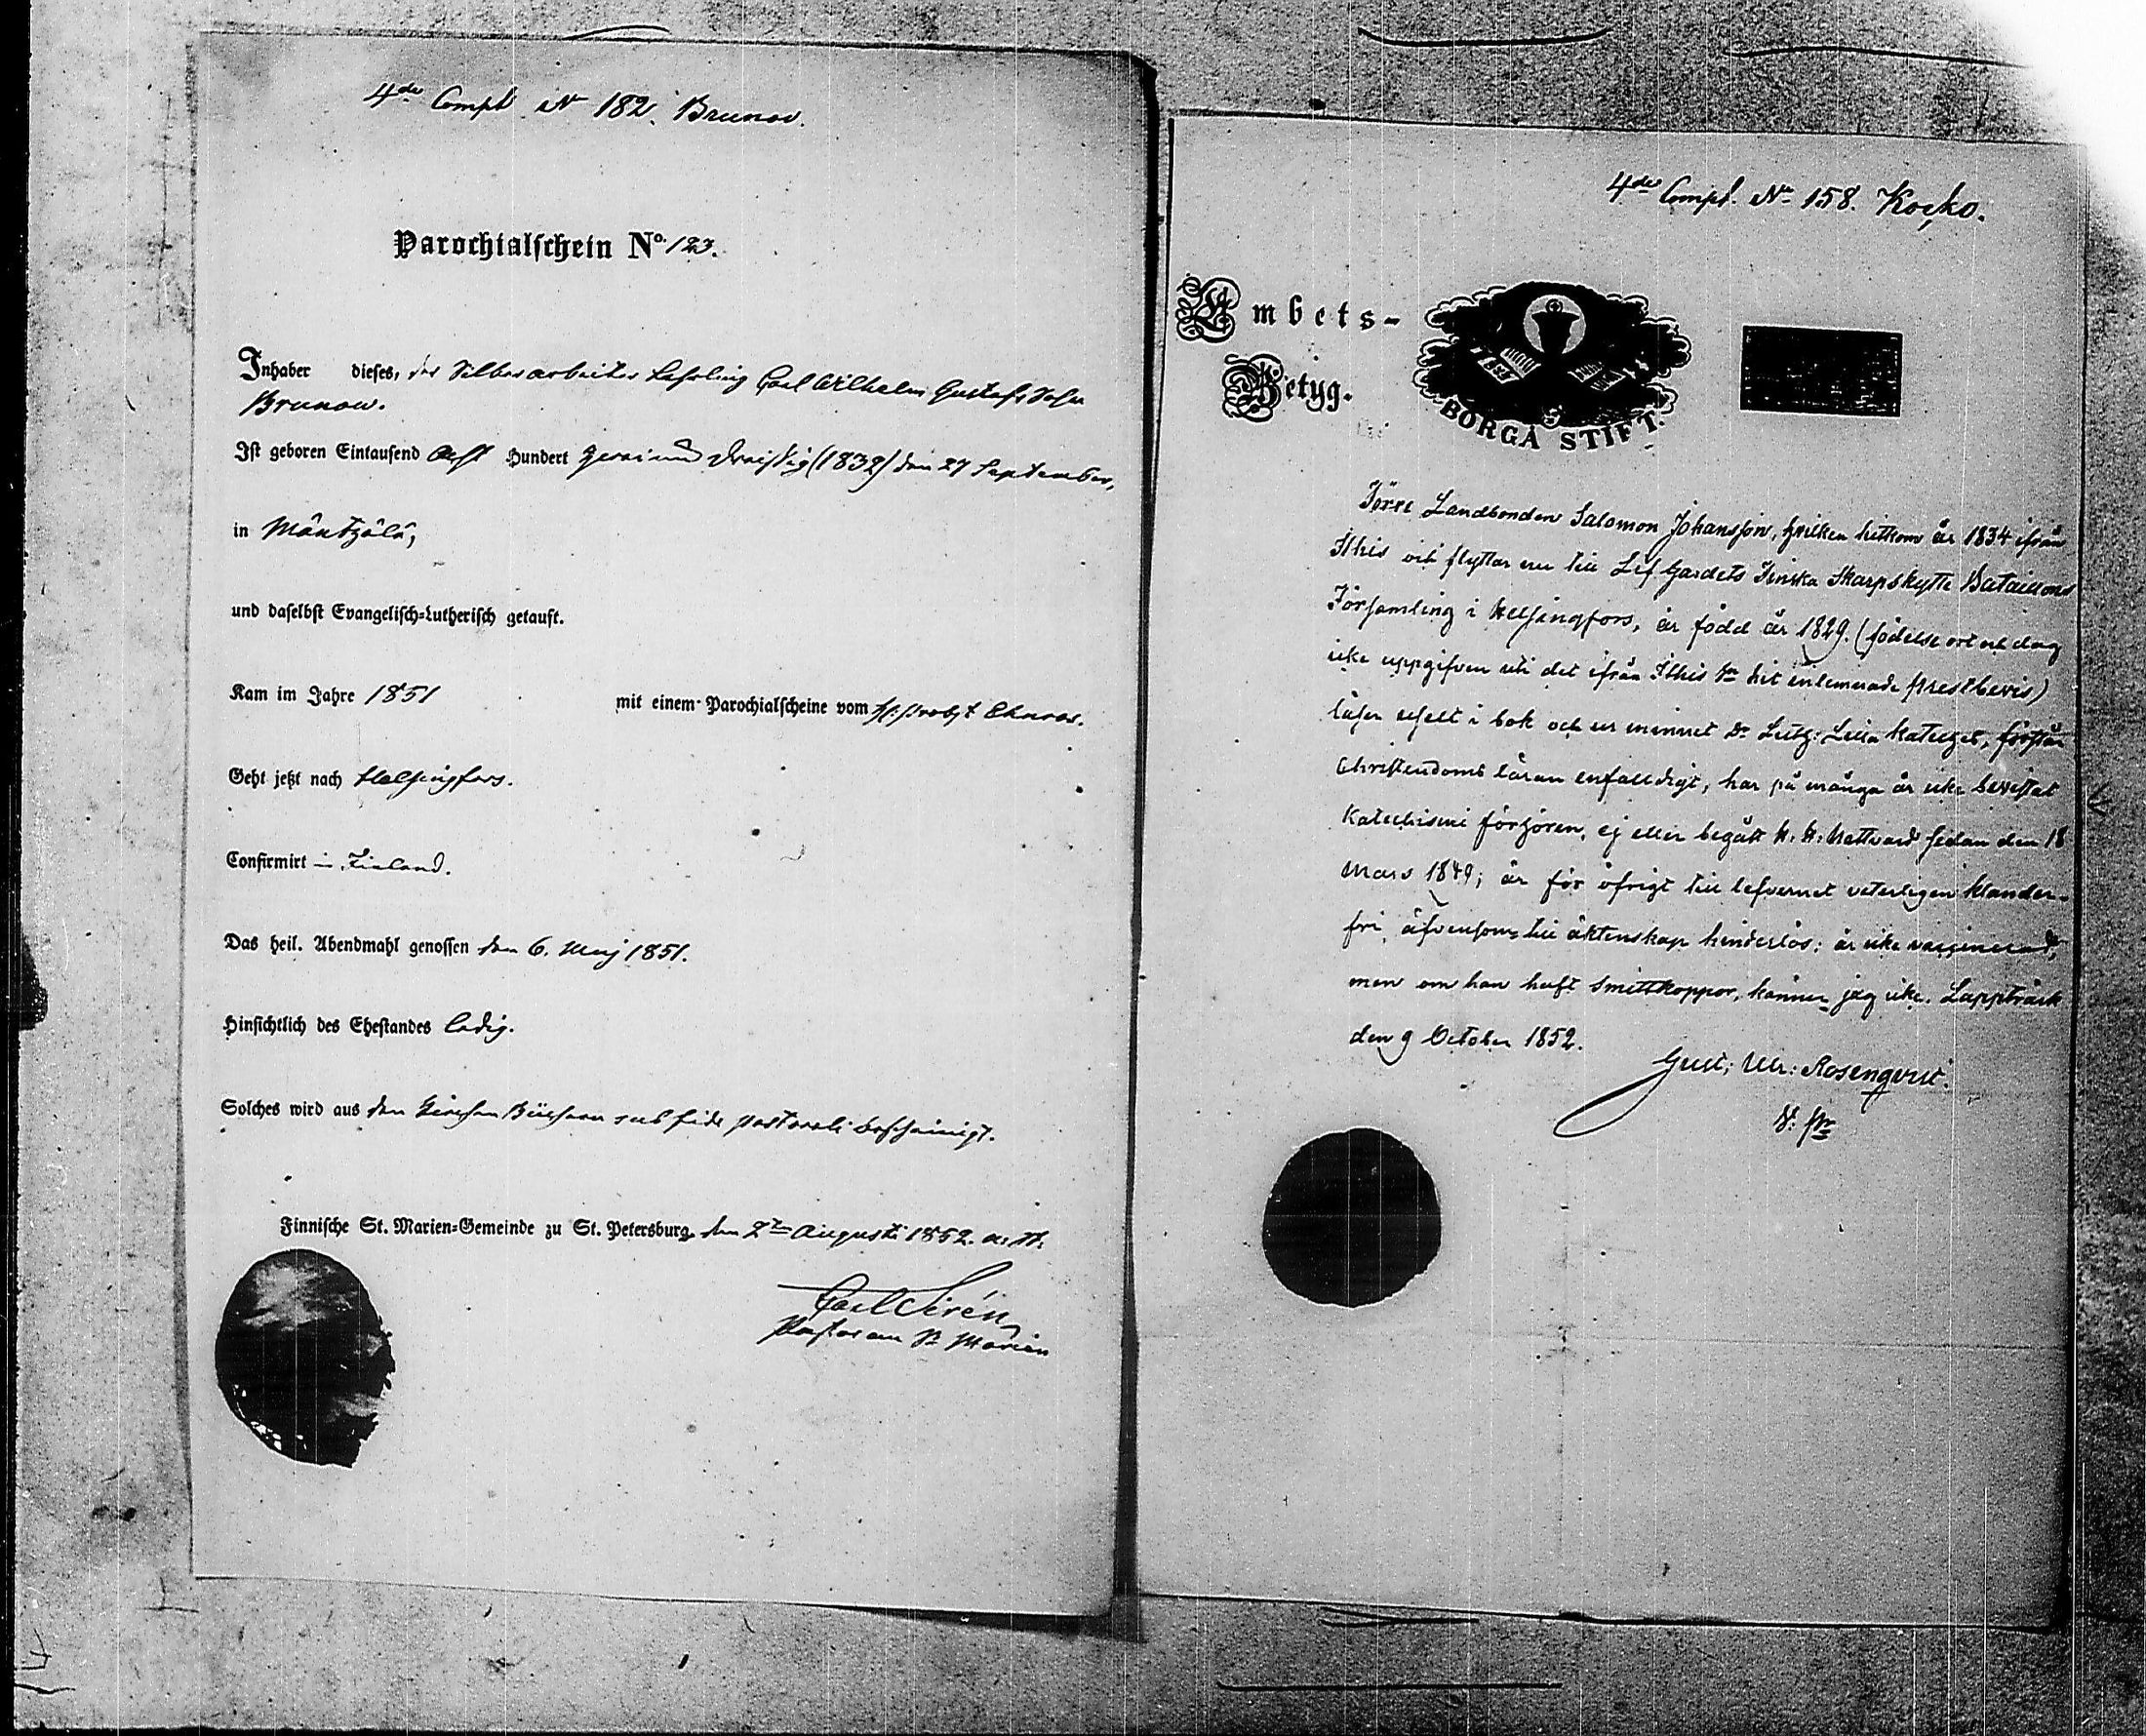 4de Compt. No 182. Brunow.
Parochialschein No. 123.
Inhaber dieses, der Silberarbeiter Lehrling Carl Wilhelm Gustafs Sohn
Brunow.
Ist geboren Eintausend Acht Hundert Zwei und Dreissig (1832) den 27 September,
in Mäntzälä,
und daselbst Evangelisch-Lutherisch getauft.
Kam im Jahre 1851 mit einem Parochialscheine vom Probst
Geht jetzt nach Helsingfors.
Confirmirt in Finland.
Das heil. Abendmahl genossen den 6. Maj 1851.
Hinsichtlich des Ehestandes ledig.
Solches wird aus den Kirchen Büchern sub fide pastorali bescheinigt.
Finnische St. Marien-Gemeinde zu St. Petersburg, den 2ten Augusti 1852. a. St.
Carl Sirén
Pastor an St Marien
4de Compt. No 158. Kosko.
Embets-
Betyg.
BORGÅ STIFT.
Förre Landbonden Salomon Johansson, hvilken hitkom år 1834 ifrån
Ithis och flyttar nu till Lif Gardets Finska Skarpskytte Bataillons
Församling i Helsingfors, är född år 1829. (födelse ort och dag
icke uppgifven uti det ifrån Ithis hit inlemnade Prestbevis)
läser i bok och ur minnet Dr Lilla Kateges, förstår
Christendoms läran enfalldigt, har på många år icke bevistat
Katechismi förhören, ej eller begått H. H. Nattvard sedan den 18
Mars 1849; är för öfrigt till lefvernet veterligen klander-
fri, äfvensom till äktenskap hinderlös; är icke vaccinerad,
men om han haft Smittkoppor, känner jag icke. Lappträsk
den 9 October 1852.
Gust: Ulr: Rosenqvist.
V: Pr